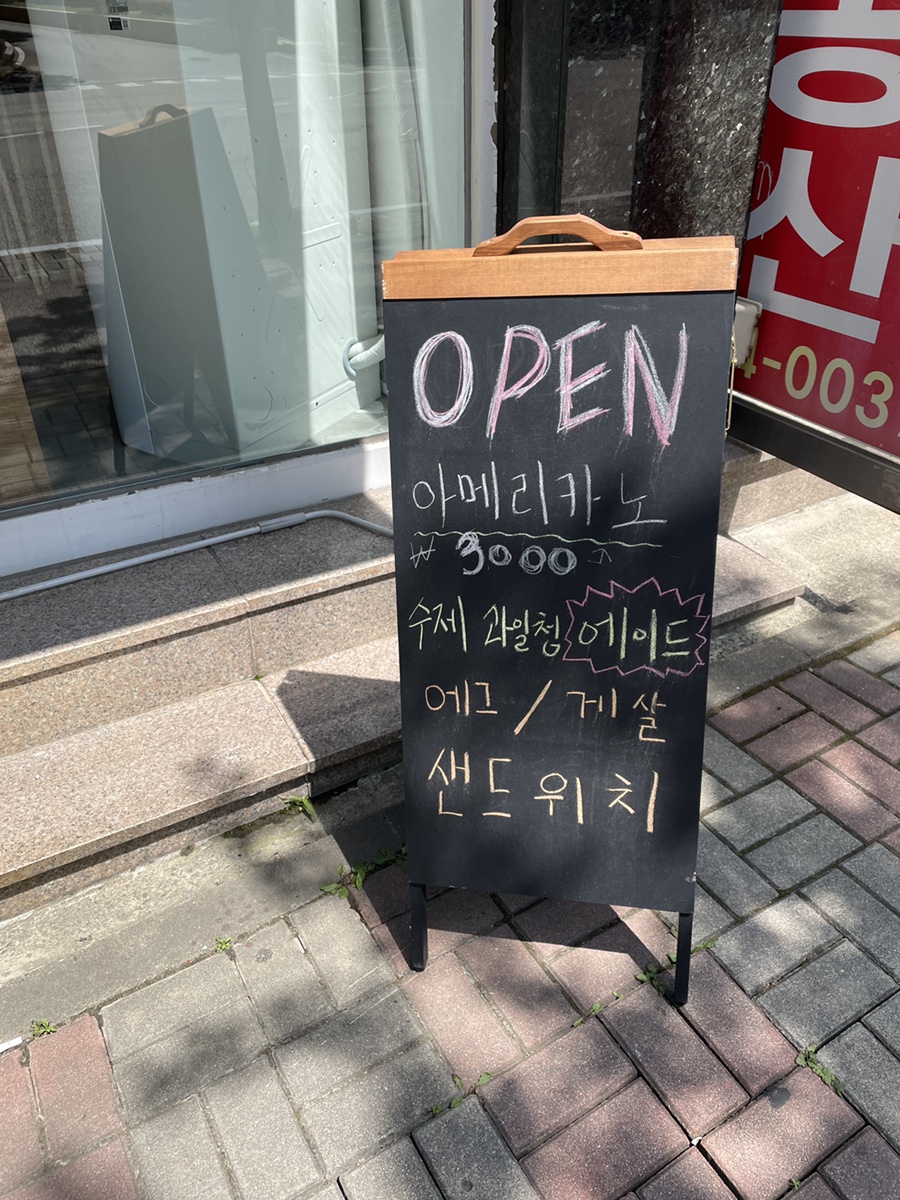 OPEN
아메리카노
₩ 3000
수제 과일청 에이드
에그 / 게살
샌드위치
4-003